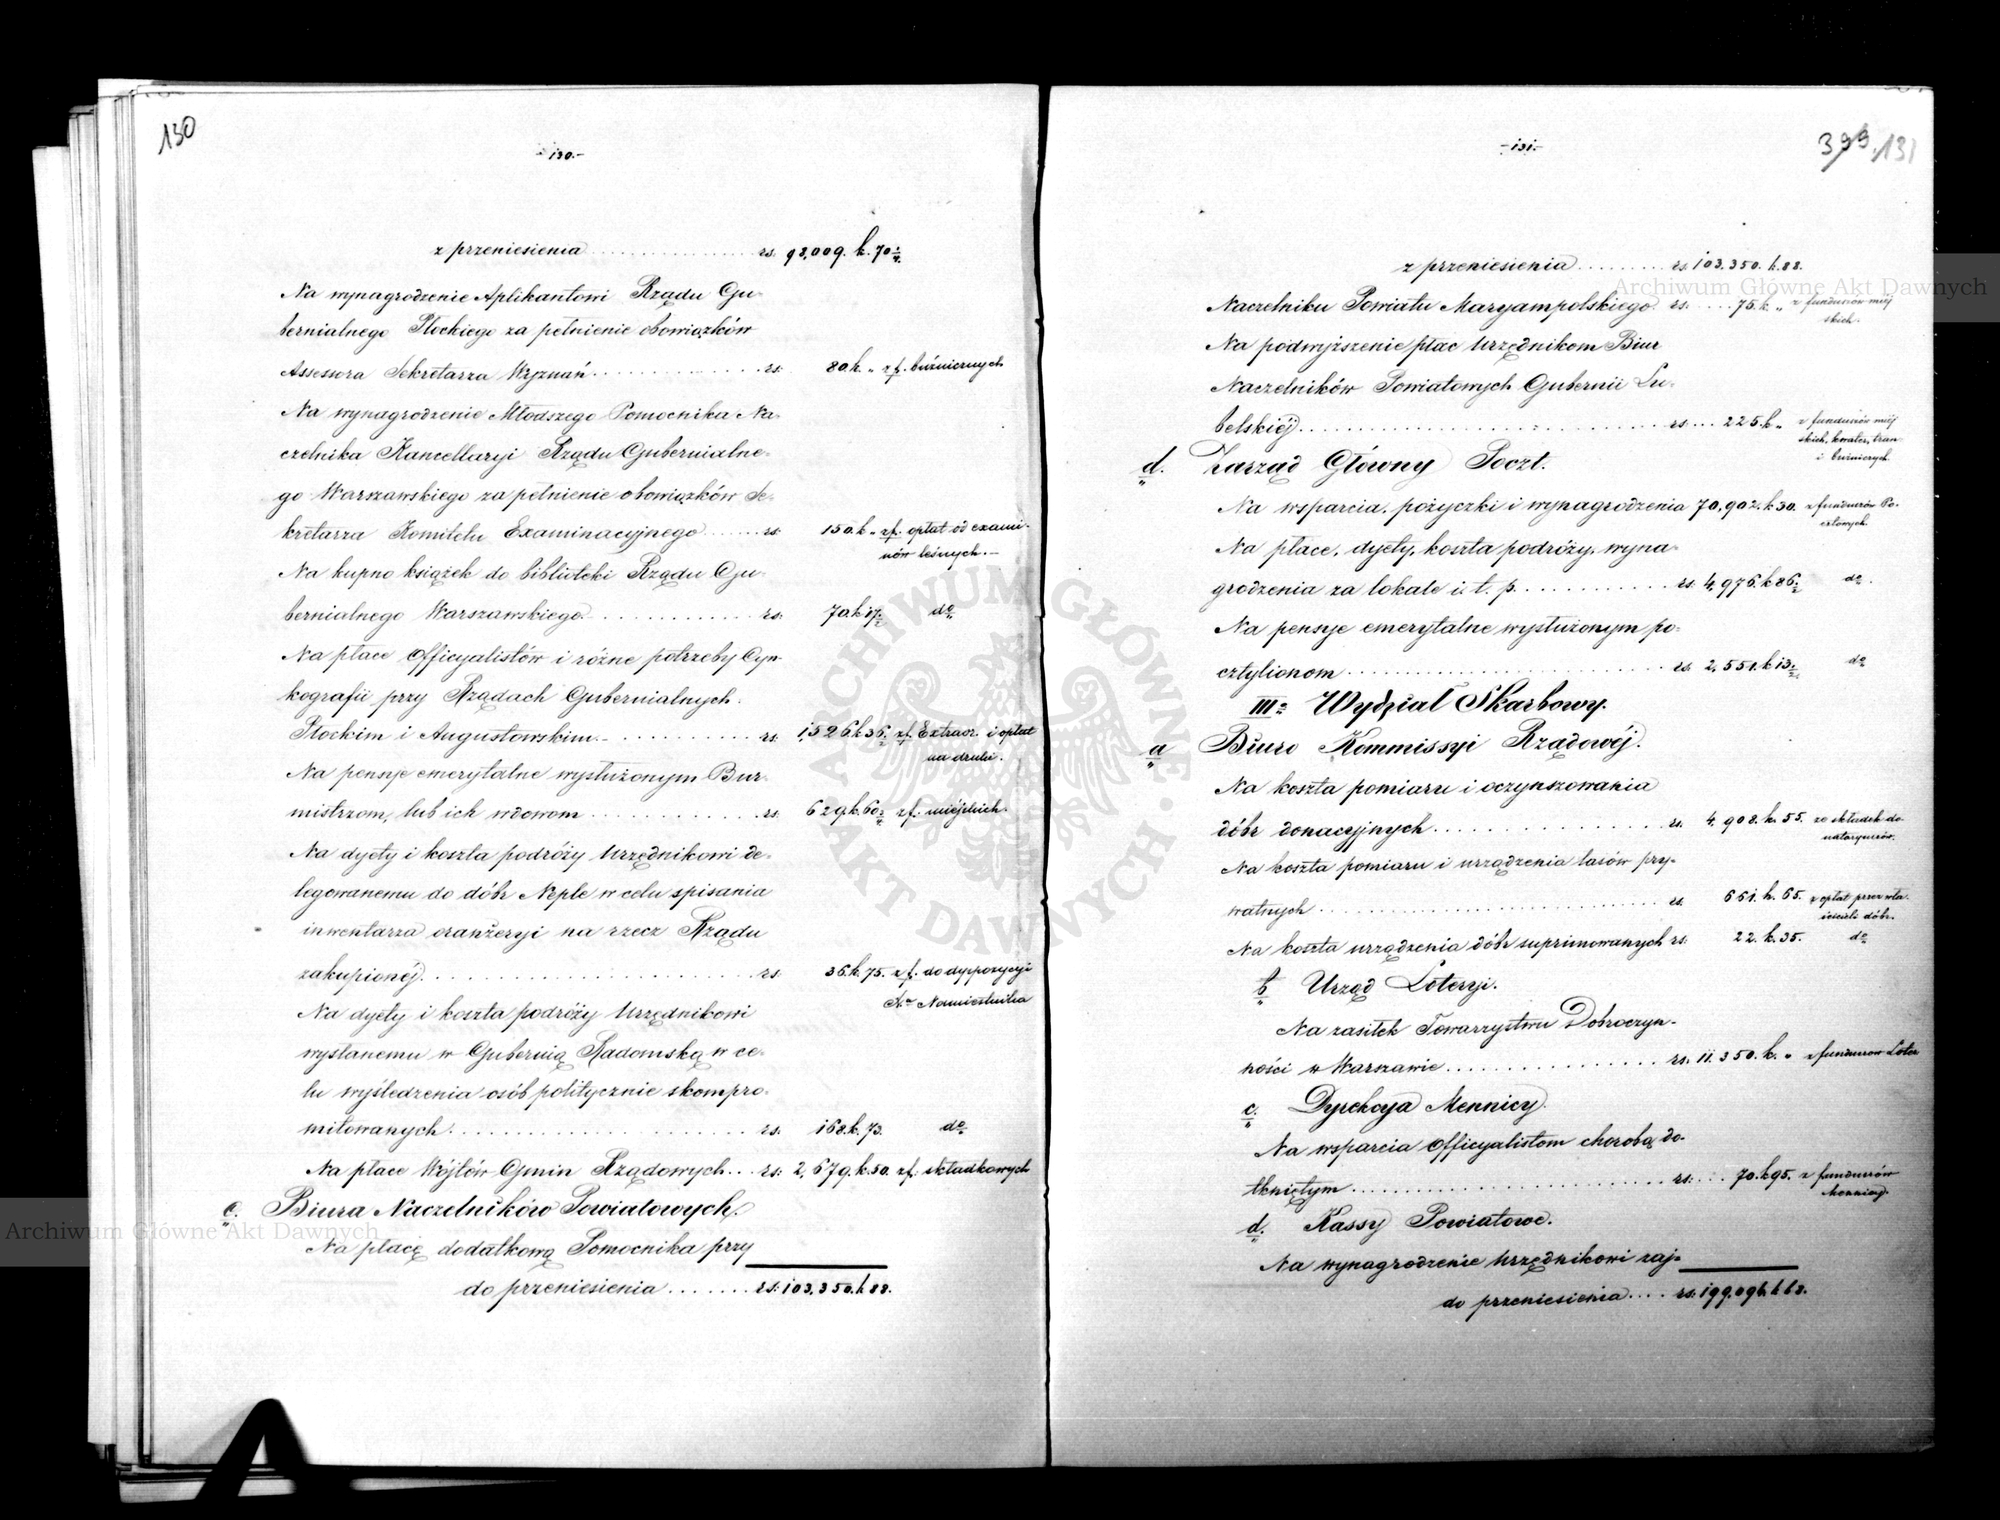 130
- 130. -
z przeniesienia rs. 98,009. k. 70
Na wynagrodzenie Aplikantowi Rządu Gu-
bernialnego Płockiego za pełnienie obowiązków
Assessora Sekretarza Wyznań rs. 80. k. „ z f. bóżnicznych
Na wynagrodzenie Młodszego Pomocnika Na-
czelnika Kancellaryi Rządu Gubernialne-
go Warszawskiego za pełnienie obowiązków Se-
kretarza Komitetu Examinacyjnego rs. 150. k. „ z f. opłat od exami-
nów leśnych. -
Na kupno książek do biblioteki Rządu Gu-
bernialnego Warszawskiego rs. 70. k. 17 do
Na płace Officyalistów i różne potrzeby Cyn-
kografii przy Rządach Gubernialnych
Płockim i Augustowskim rs. 1,526 k. 36 z f. Extraor. i opłat
na druki.
Na pensje emerytalne wysłużonym Bur-
mistrzom, lub ich wdowom rs. 629. k. 60 z f. miéjskich.
Na dyety i koszta podróży Urzędnikowi de-
legowanemu do dóbr Neple w celu spisania
inwentarza oranżeryi na rzecz Rządu
zakupionéj rs. 36. k. 75. z f. do dyspozycyi
Namiestnika
Na dyety i koszta podróży Urzędnikowi
wysłanemu w Gubernią Radomską w ce-
lu wyśledzenia osób politycznie skompro-
mitowanych rs. 168. k. 73. do
Na płace Wójtów Gmin Rządowych rs. 2,679. k. 50. z f. składkowych
c. Biura Naczelników Powiatowych.
Na płacę dodatkową Pomocnika przy
do przeniesienia rs. 103,350. k. 88.
- 131. -
399. 131
z przeniesienia rs. 103,350. k. 88.
Naczelniku Powiatu Maryampolskiego rs. 75. k. „ z funduszów miéj
skich.
Na podwyższenie płac Urzędnikom Biur
Naczelników Powiatowych Gubernii Lu-
belskiéj rs. 225. k. „ z funduszów miéj
skich, kwater, tran
i bóżniczych
d. Zarząd Główny Poczt.
Na wsparcia, pożyczki i wynagrodzenia 70,902. k. 30. z funduszów Po-
cztowych.
Na płace, dyety, koszta podróży, wyna-
grodzenia za lokale i. t. p. rs. 4,976. k. 86 do.
Na pensje emerytalne wysłużonym po-
cztylionom rs. 2,551. k. 13 do
III. Wydział Skarbowy.
a Biuro Kommissyi Rządowéj.
Na koszta pomiaru i oczynszowania
dóbr donacyjnych rs. 4,908. k. 55. ze składek do-
nataryuszów.
Na koszta pomiaru i urządzenia lasów pry-
watnych rs. 661. k. 65. z opłat przez wła-
ścicieli dóbr.
Na koszta urządzenia dóbr suprimowanych rs. 22. k. 35. do
b Urząd Loteryi.
Na zasiłek Towarzystwu Dobroczyn-
ności w Warszawie rs. 11,350. k. „ z funduszów Loter
c. Dyrekcya Mennicy.
Na wsparcia Officyalistom chorobą do-
tkniętym rs. 70. k. 95. z funduszów
Mennicy.
d. Kassy Powiatowe.
Na wynagrodzenie Urzędnikowi zaj-
do przeniesienia rs. 199,096. k. 68.
Archiwum Główne Akt Dawnych
Archiwum Główne Akt Dawnych
ARCHIWUM GŁÓWNE AKT DAWNYCH